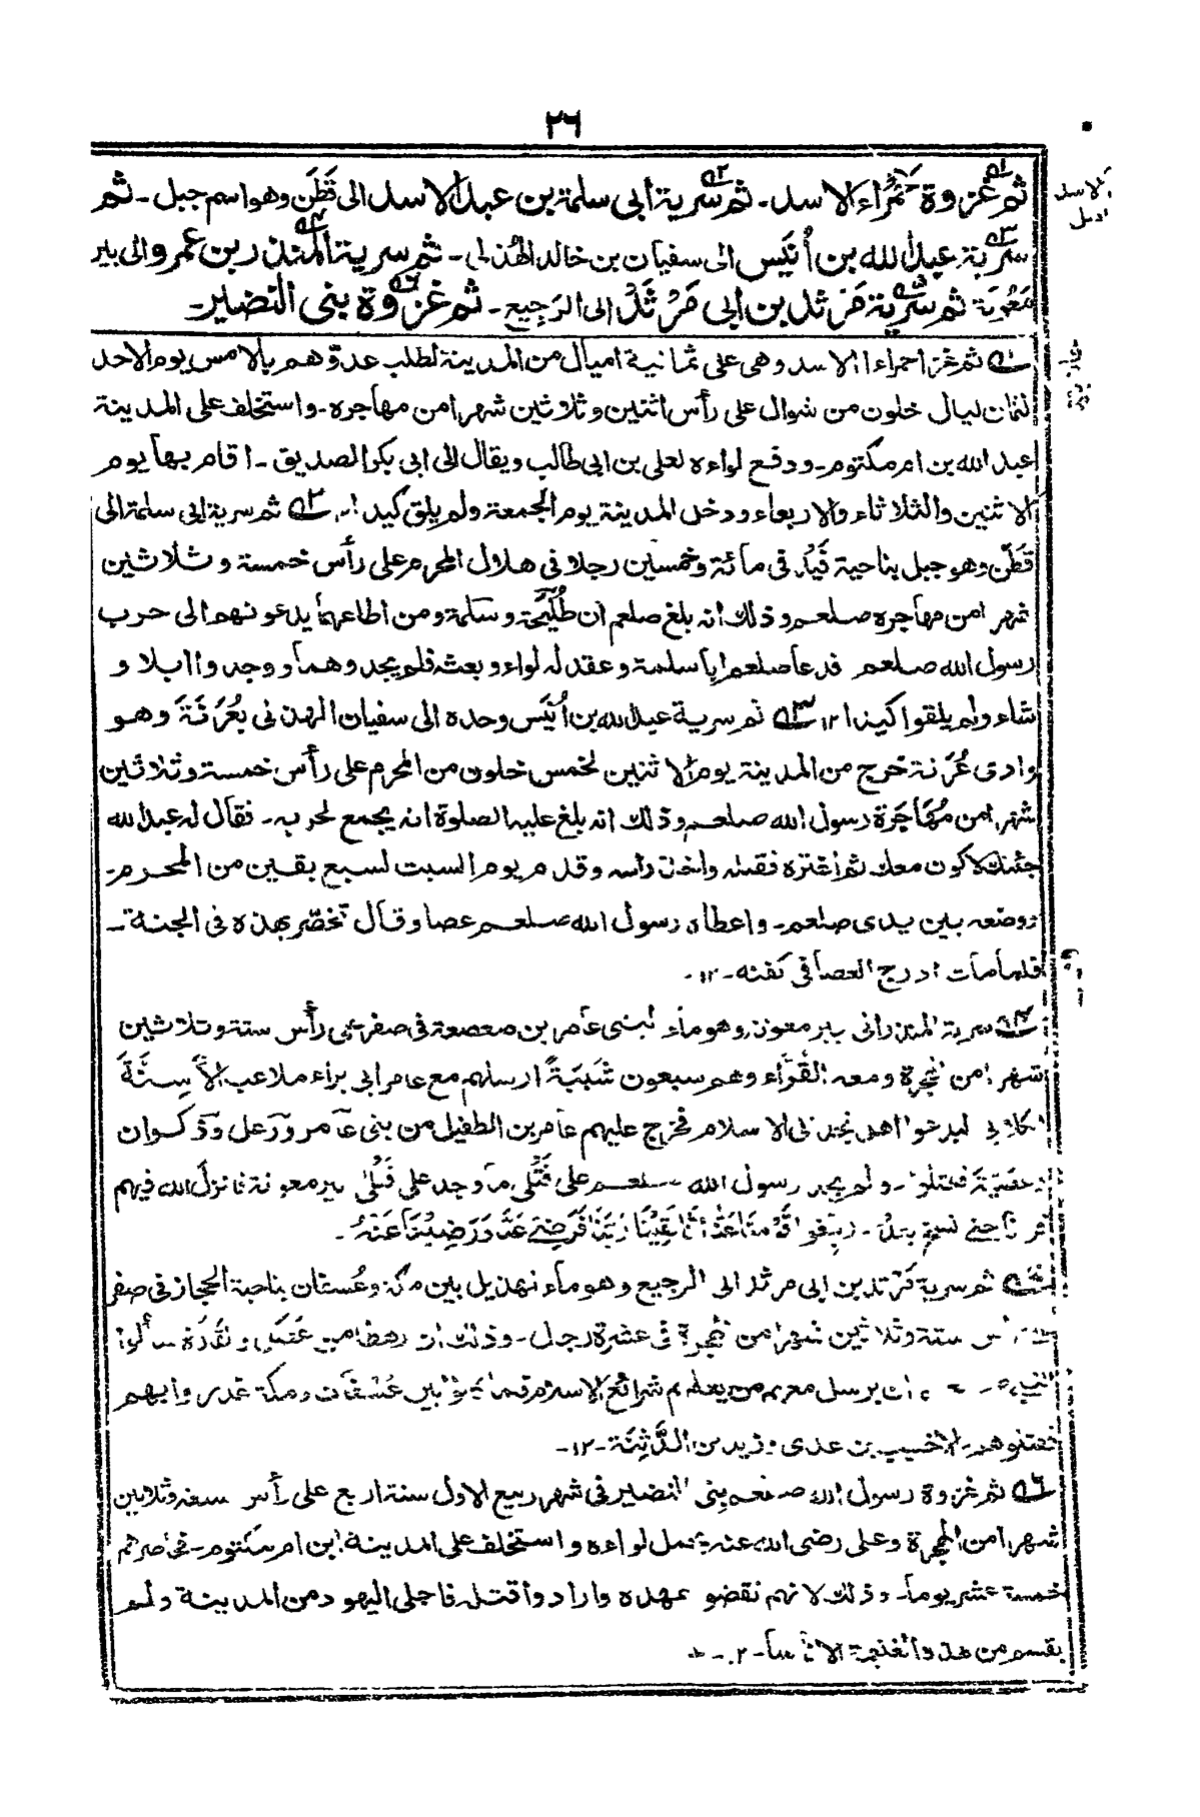 ٢٦
ثم غزوة حَمْرَاء الاسد ـ ثم سرية ابى سلمة بن عبد الاسد الى قَطَن وهو اسم جبل ـ ثم
سرية عبد الله بن اُنَيَس الى سفيان بن خالد الهُذلى ـ ثم سرية المنذر بن عمرو الى بير
مَعُونة ثم سرية مَرْثد بن ابى مَرْثَدْ الى الرَجِيع ـ ثم غزوة بنى النضير ـ
ا؎ ثم غزا حمراء الاسد وهى على ثمانية اميال من المدينة لطلب عدوهم بالامس يوم الاحد
لثمان ليال خلون من شوال على رأس اثنين وثلاثين شهرا من مهاجره ـ واستخلف على المدينة
عبد الله بن ام مكتوم ـ ودفع لواءه لعلى بن ابى طالب ويقال الى ابى بكر الصديق ـ اقام بها يوم
الاثنين والثلاثاء والاربعاء ودخل المدينة يوم الجمعة ولم يلق كيدا ١٢ ٢؎ ثم سرية ابى سلمة الى
قَطَن وهو جبل بناحية فَيْد فى مائة وخمسين رجلا فى هلال المحرم على رأس خمسة وثلاثين
شهرا من مهاجره صلعم وذلك انه بلغ صلعم ان طُلَيْحَة وسَلمة ومن اطاعهما يدعونهم الى حرب
رسول الله صلعم فدعا صلعم ابا سلمة وعقد له لواء وبعثه فلم يجد وهما ووجدوا ابلا و
شاء ولم يلقوا كيدا ١٢ ٣؎ ثم سرية عبد الله بن اُنَيَس وحده الى سفيان الهذلى بعُرَنَةَ وهو
وادى عُرَنة خرج من المدينة يوم الاثنين لخمس خلون من المحرم على رأس خمسة وثلاثين
شهرا من مُهَاجَرة رسول الله صلعم وذلك انه بلغ عليه الصلوة انه يجمع لحربه ـ فقال له عبد الله
جئتك لاكون معك ثم اغتره فقتله واخذ راسه وقدم يوم السبت لسبع بقين من المحرم ـ
ووضعه بين يدى صلعم ـ واعطاه رسول الله صلعم عصا وقال تخصّر بهذه فى الجنة ـ
فلما مات ادرج العصا فى كفنه ـ ١٢ ـ
٤؎ سرية المنذر الى بير معونة وهو ماء لبنى عامر بن صعصعة فى صفر على رأس ستة وثلاثين
شهرا من الهجرة ومعه القُرَّاء وهم سبعون شَبَبَةً ارسلهم مع عامر ابى براء ملاعب الاَسِنَّةَ
الكلابى ليدعوا اهل نجد الى الاسلام فخرج عليهم عامر بن الطفيل من بنى عامر ورَعل وذكوان
وعُصَيَّةَ فقتلوا ـ ولم يجد رسول الله صلعم على قَتْلى ما وجد على قَتْلى بير معونة فانزل الله فيهم
بلغوا قَوْمَنَا عَنَّا اَنَّا لَقِينَا رَبَّنَا فَرَضِىَ عَنَّا وَرَضِيْنَا عَنْهُ ـ
٥؎ ثم سرية مَرْثد بن ابى مرثد الى الرجيع وهو ماء لهذيل بين مكة وعُسفان بناحية الحجاز فى صفر
رأس ستة وثلاثين شهرا من الهجرة فى عشرة رجل ـ وذلك ان رهطا من عَضَل والقَارَة سألوا
ان يرسل معهم من يعلمهم شرائع الاسلام فلما كانوا بين عُسْفان ومكة غدروا بهم
فقتلوهم الا خبيب بن عدى وزيد بن الدَّثِنَة ـ ١٢ ـ
٦؎ ثم غزوة رسول الله صلعم بنى النضير فى شهر ربيع الاول سنة اربع على رأس سبعة وثلاثين
شهرا من الهجرة وعلى رضى الله عنه يحمل لواءه واستخلف على المدينة ابن ام مكتوم ـ فحاصرهم
خمسة عشر يوما ـ وذلك لانهم نقضوا عهده وارادوا قتله فاجلى اليهود من المدينة ولم
يقسم من هذه الغنيمة